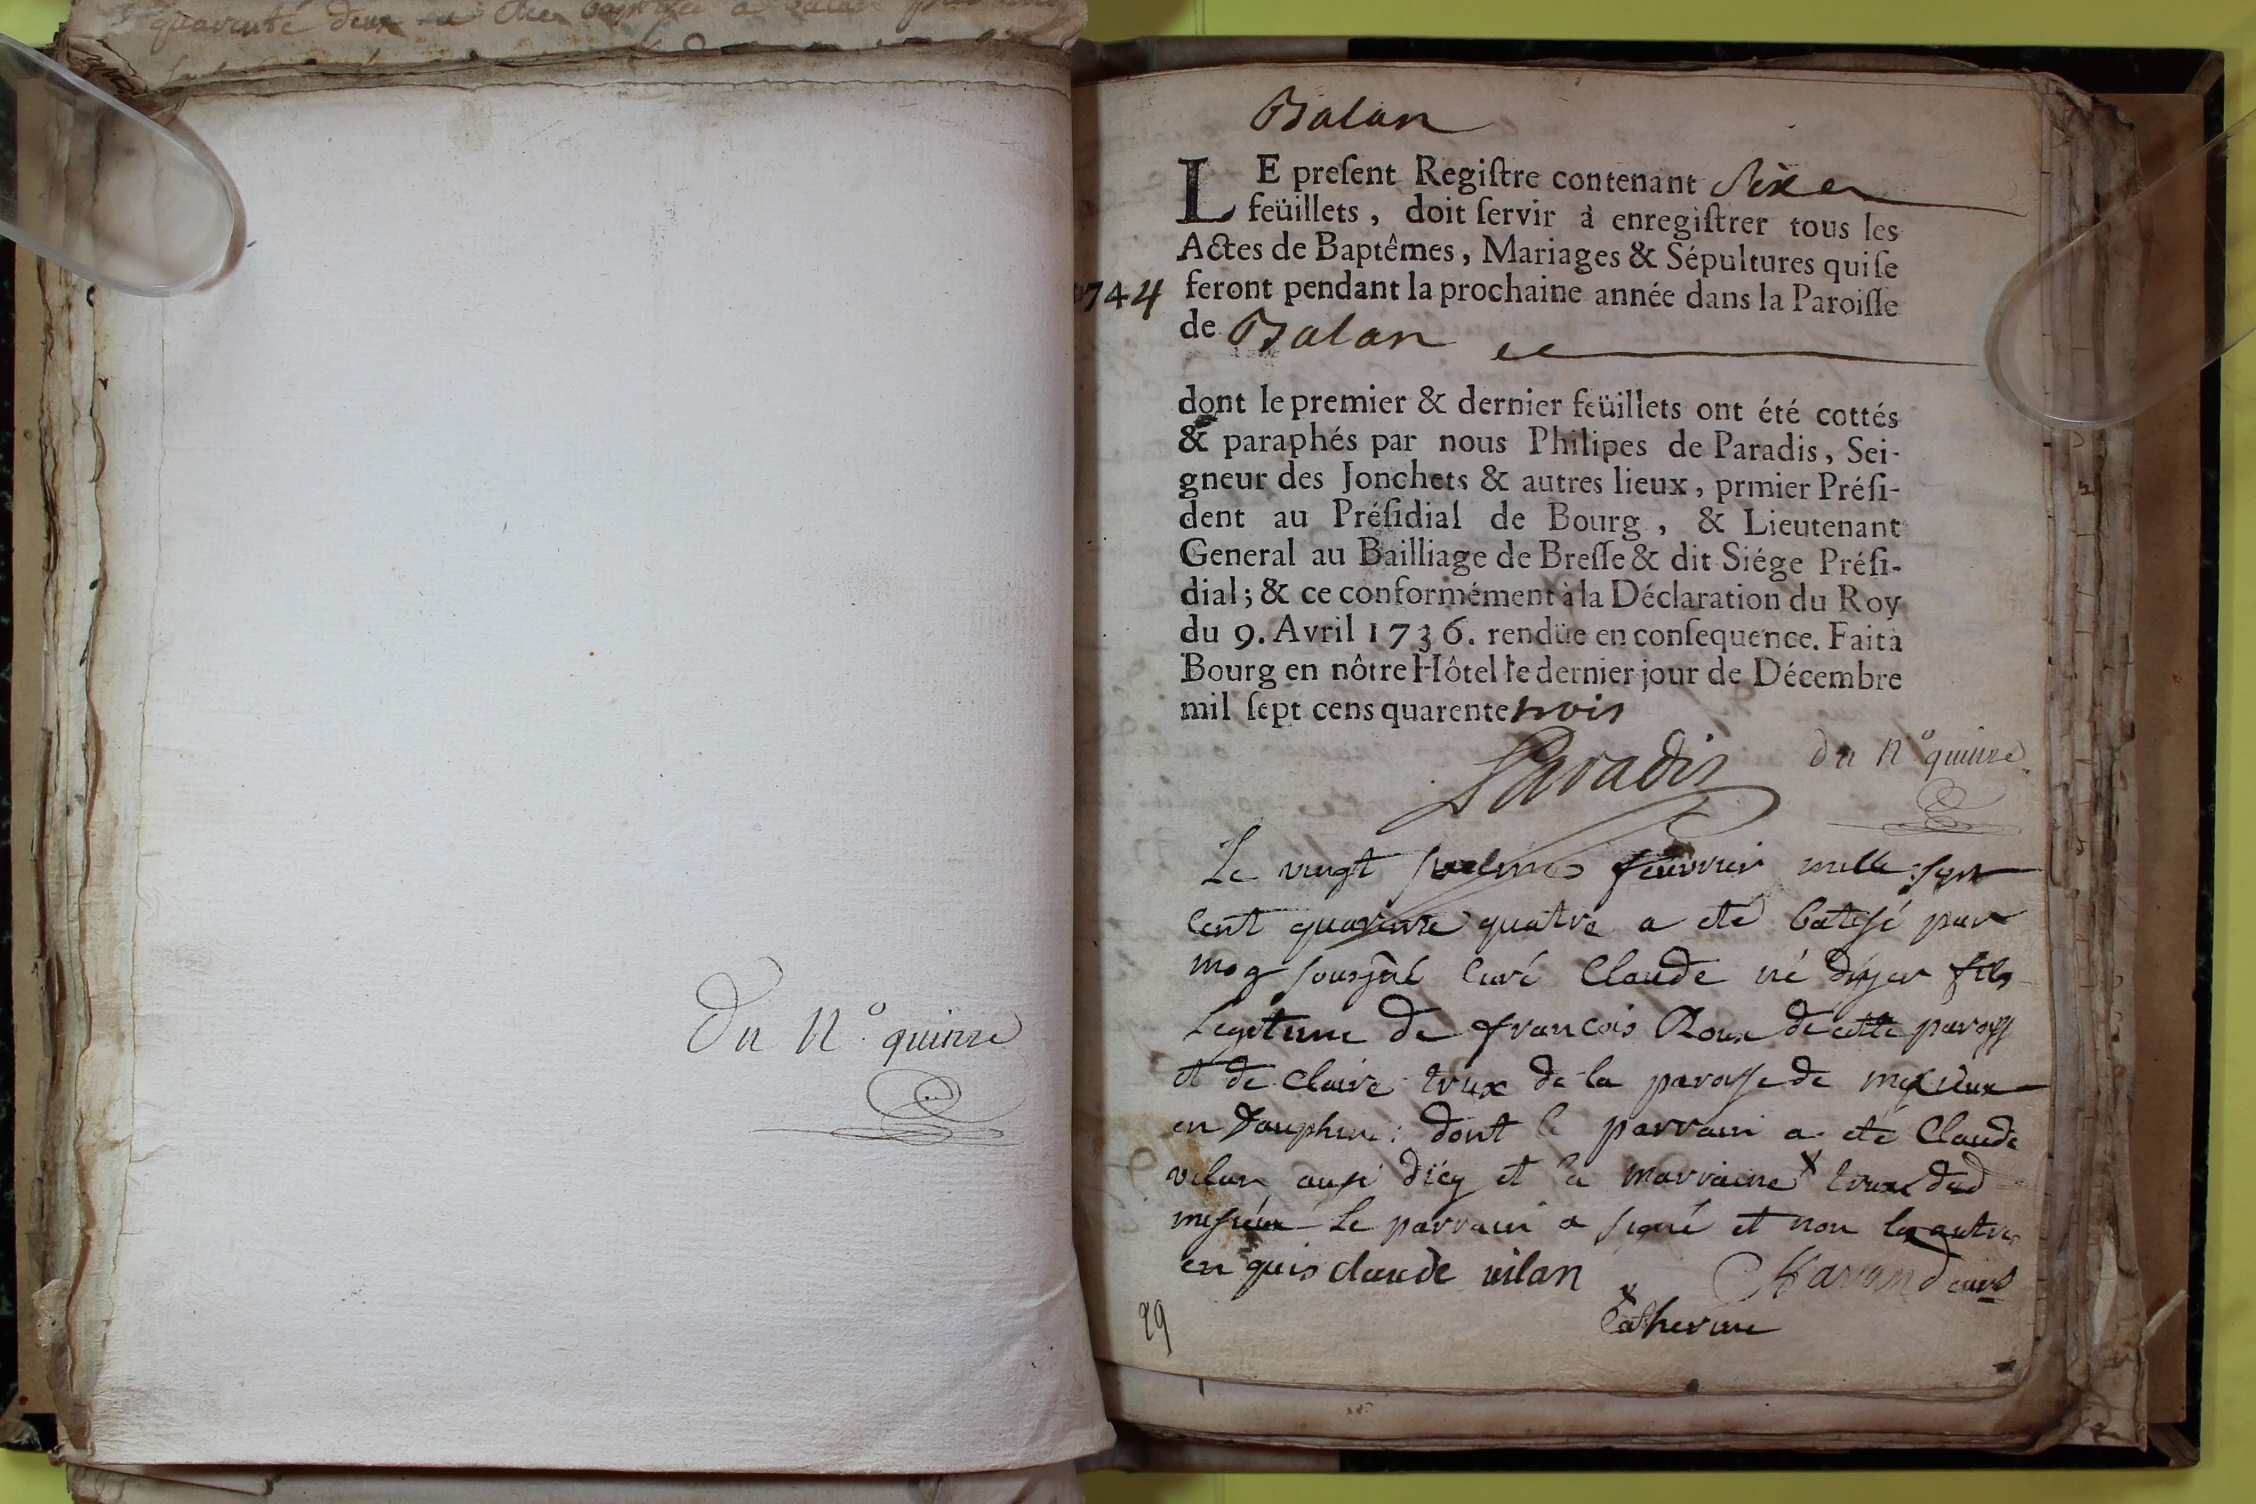 quarente deux a été baptisé a
Du N.o quinze
Balan
LE preſent Regiſtre contenant Six
feüillets, doit ſervir à enregiſtrer tous les
Actes de Baptêmes, Mariages & Sépultures qui ſe
1744
feront pendant la prochaine année dans la Paroiſſe
de Balan
dont le premier & dernier feüillets ont été cottés
& paraphés par nous Philipes de Paradis, Sei-
gneur des Jonchets & autres lieux, prmier Préſi-
dent au Préſidial de Bourg, & Lieutenant
General au Bailliage de Breſſe & dit Siége Préſi-
dial; & ce conformément à la Déclaration du Roy
du 9. Avril 1736. rendüe en conſequence. Fait à
Bourg en nôtre Hôtel le dernier jour de Décembre
mil ſept cens quarente trois
Paradis
du N.o quinze
Le vingt feuvrier mille sept
cent quarente quatre a eté batisé par
moy sousné curé Claude né d'hyer fils
Legitime de francois Roux de cette paroys
et de claire trux de la paroysse de mesieux
en Dauphine: dont le parrain a eté Claude
vilan aussi d'icy et la marraine x trux dud
mesieux Le parrain a signé et non les autres
enquis claude vilan
Chavand curé
x Catherine
29